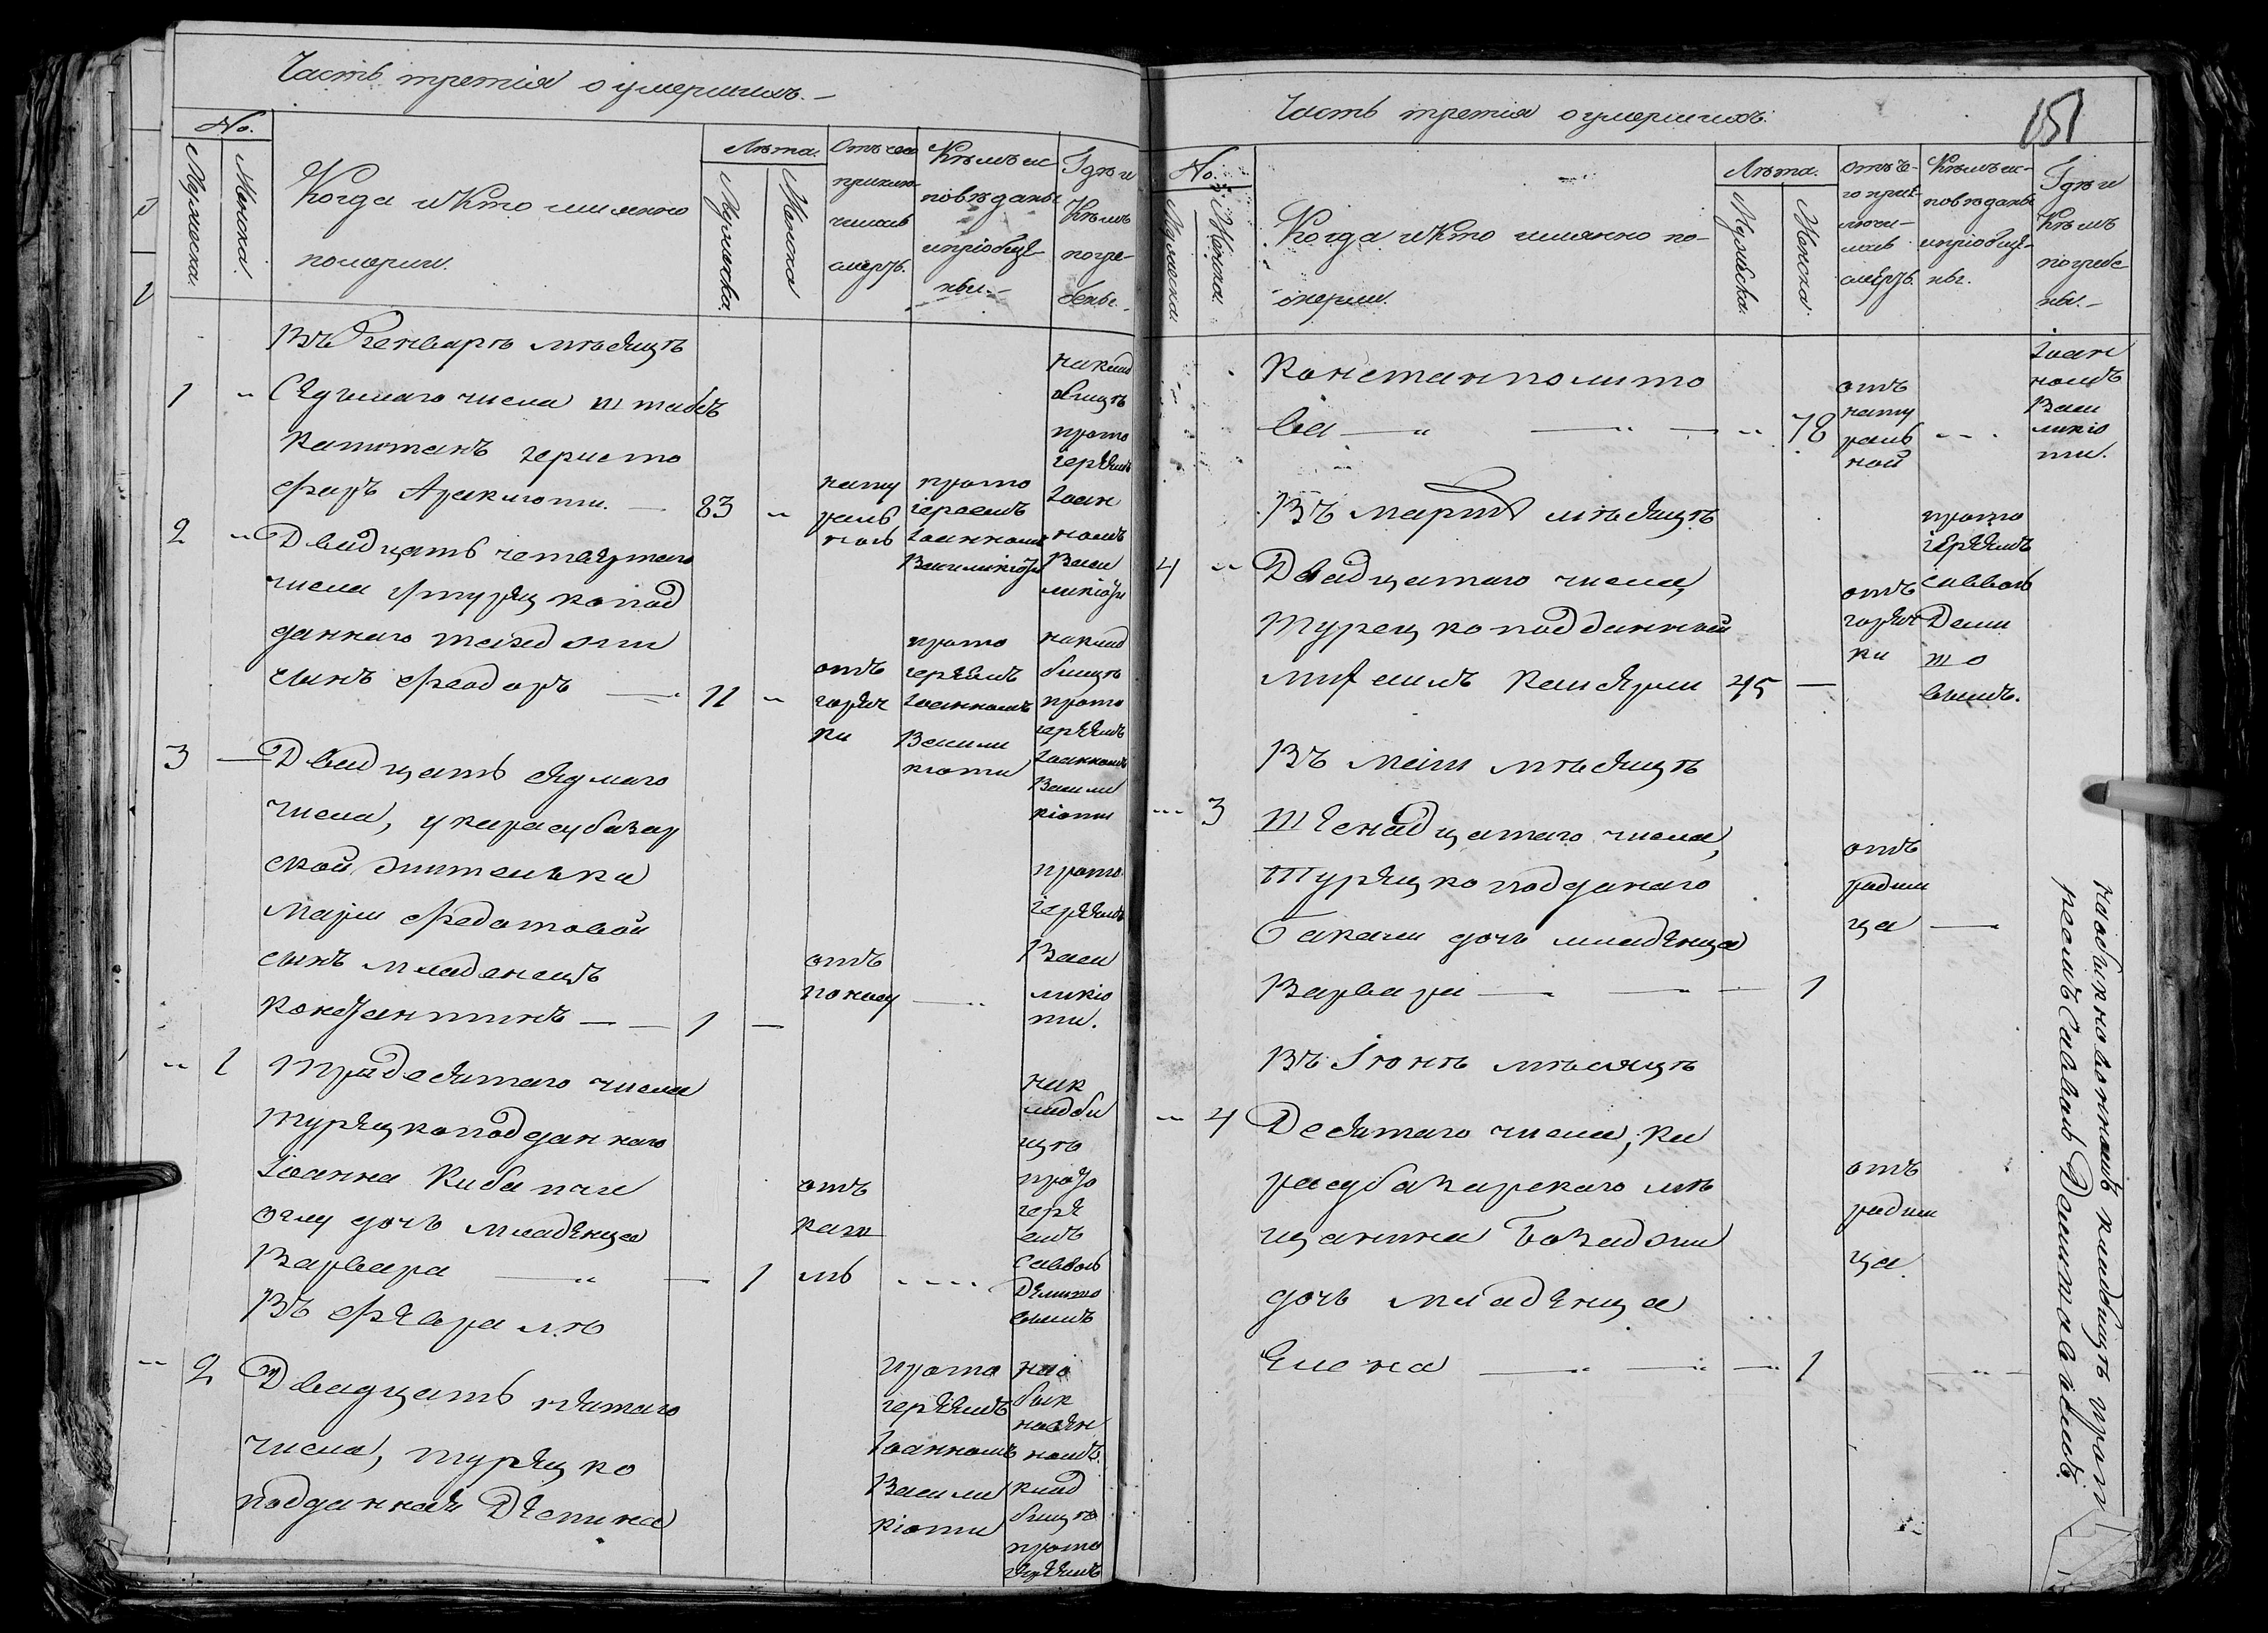 Часть третія о умершихъ.
No.
Мужеска.
Женска.
Когда и Кто имянно
померли.
Лѣта.
Мужеска.
Женска
Отъ чего
приклю-
чилась
смерть.
Кѣмъ ис
повѣданы
и пріобще
ны.
Гдѣ и
Кѣмъ
погре-
бены.
Въ Генварѣ мѣсяцѣ
1
Седмаго числа штабсъ
капитанъ Христо
форъ
83
нату
раль
ной
прото
іереемъ
Іоанномъ
Василикіоти
на клад
бищѣ
прото
іереемъ
Іоан
номъ
Васи
ликіоти
2
Двадцать четвертаго
числа турецкопод
даннаго
сынъ Феодоръ
11
отъ
горяч
ки
прото
іереемъ
Іоанномъ
Васили
кіоти
на клад
бищѣ
прото
іереемъ
Іоанномъ
Васили
кіоти
3
Двадцать седмаго
числа, у карасубазар
ской жительки
Маріи Федотовой
сынъ младенецъ
Константинъ
1
отъ
поносу
прото
іереемъ
Васи
ликіо
ти.
1
Тридесятаго числа
турецкоподданнаго
Іоанна
оглу дочь младенца
Варвара
1
отъ
каш
ль
на к
ладби
щѣ
прото
іере
емъ
Саввою
Демито
вымъ
Въ Февралѣ
2
Двадцать пятаго
числа, турецко
подданная Деспина
прото
іереемъ
Іоанномъ
Васили
кіоти
на о
бык
новен
номъ
клад
бищѣ
прото
іереемъ
Часть третія о умершихъ.
151
No.
Мужеска.
Женска.
Когда и Кто имянно по-
мерли.
Лѣта.
Мужеска.
Женска.
отъ че-
го прик-
лючи-
лась
смерть.
Кѣмъ ис-
повѣданы
и пріобще-
ны.
Гдѣ и
Кѣмъ
погребе
ны.
Константполито
ва
78
отъ
нату
раль
ной
Іоан
номъ
Васи
ликіо
ти.
Въ Мартѣ мѣсяцѣ
4
Двадцатаго числа,
турецкоподданный
45
отъ
горяч
ки
прото
іереемъ
Саввою
Деми
то
вымъ.
Въ Маіи мѣсяцѣ
3
Шеснадцатаго числа,
турецкоподданаго
Бакали дочь младенца
Варвара
1
отъ
родим
ца
Въ Іюнѣ мѣсяцѣ
4
Десятаго числа, ка
расубазарскаго мѣ
щанина
дочь младенца
Елена
1
отъ
родим
ца
на обыкновенномъ кладбищѣ прот
іереемъ Саввою Демитовичемъ.